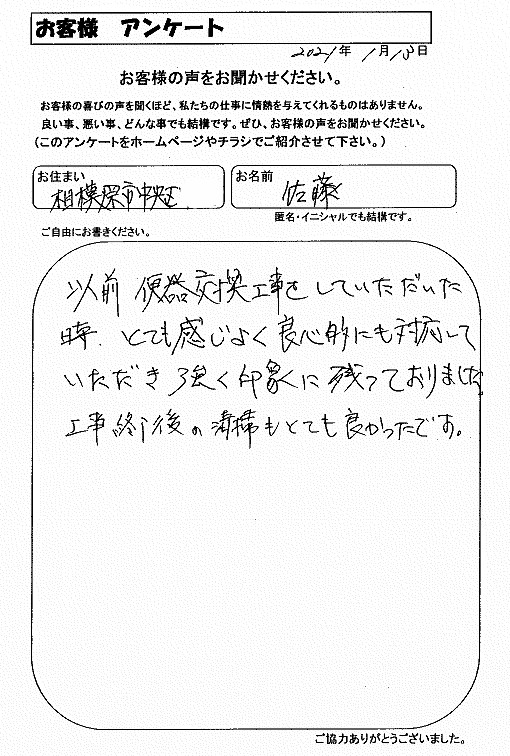 お客様 アンケート
2021年 1月13日
お客様の声をお聞かせください。
お客様の喜びの声を聞くほど、私たちの仕事に情熱を与えてくれるものはありません。
良い事、悪い事、どんな事でも結構です。ぜひ、お客様の声をお聞かせください。
(このアンケートをホームページやチラシでご紹介させて下さい。)
お住まい
相模原市中央区
お名前
佐藤
匿名・イニシャルでも結構です。
ご自由にお書きください。
以前 便器交換工事をしていただいた
時、とても感じよく良心的にも対応して
いただき 強く印象に残っておりました。
工事終了後の清掃もとても良かったです。
ご協力ありがとうございました。